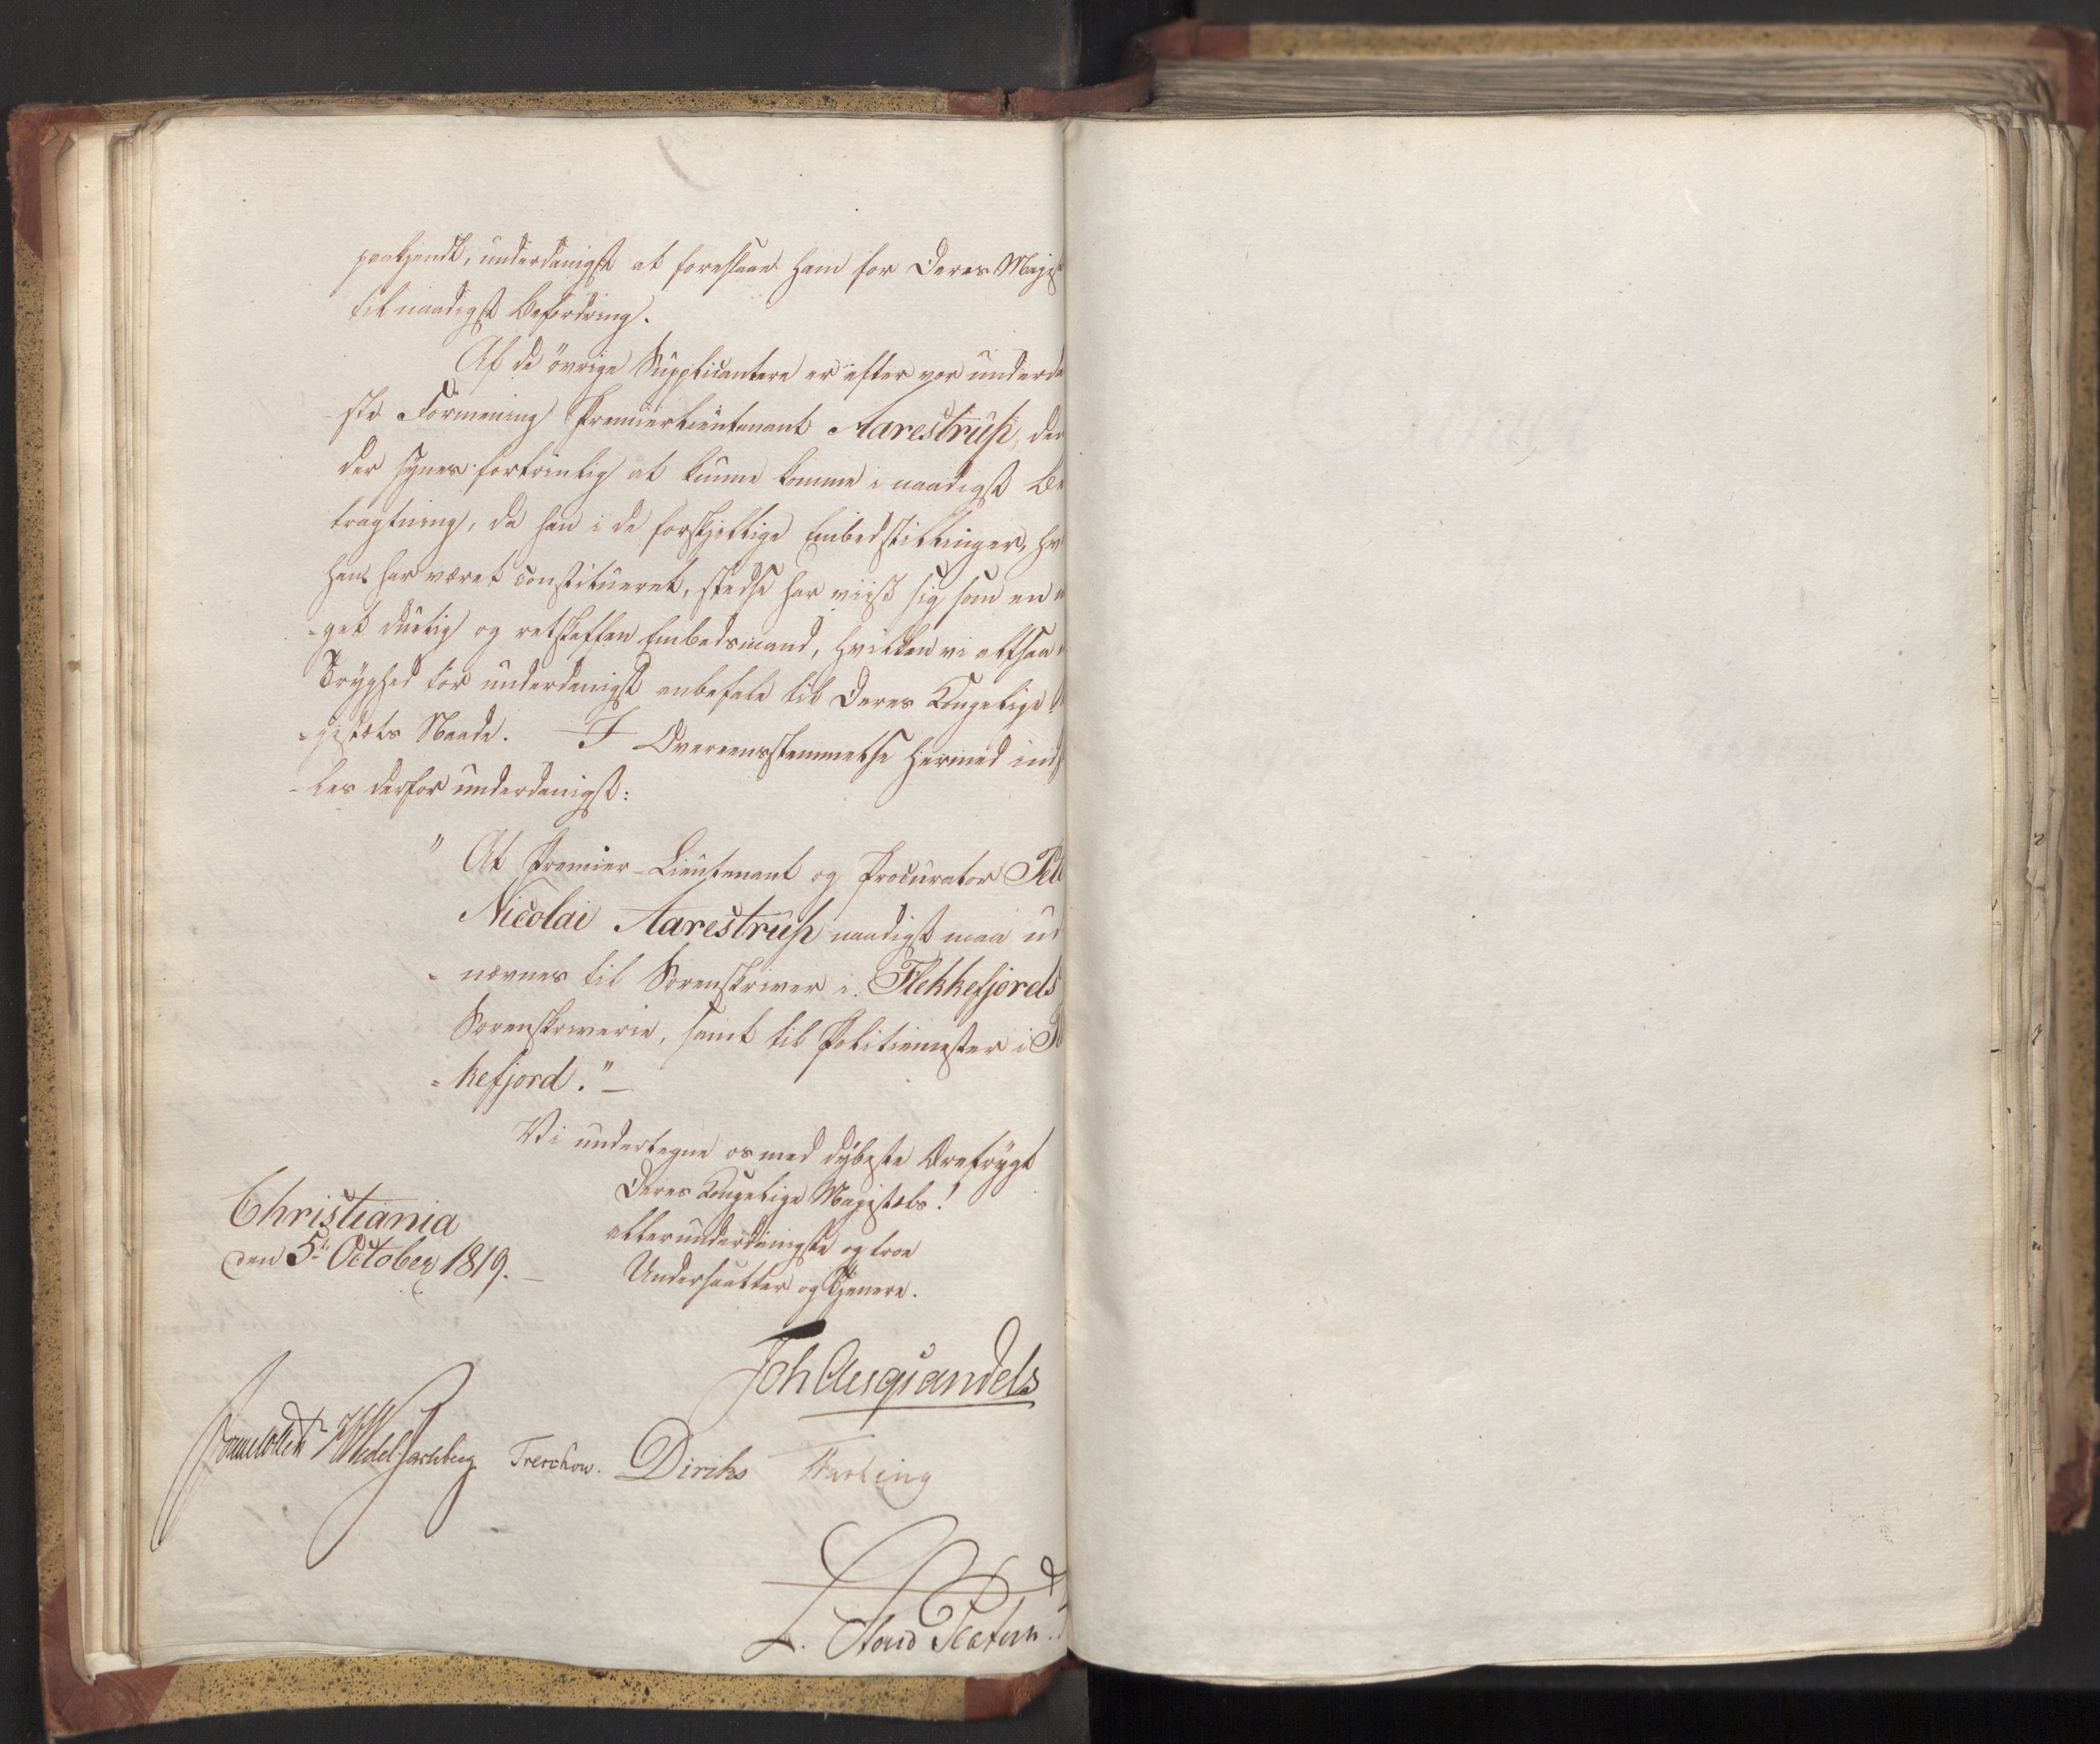 paakjendt, underdanigst at foreslaae ham for Deres Majest
til naadigst Befordring.
Af de övrige Supplicantere er efter vor underda
ste Formening Premierlieutenant Aarestrup, den
der synes fortrinlig at kunne komme i naadigst Be
tragtning, da han i de forskjellige Embedsstillinger, hv
han har været constitueret, stedse har viist sig som en m
-get duelig og retskaffen Embedsmand, hvilken vi altsaa m
Tryghed tör underdanigst anbefale til Deres Kongelige M
-jestæts Naade. I Overeensstemmelse hermed inds
-les derfor underdanigst:
" At Premier-Lieutenant og Procurator Pet
Nicolai Aarestrup naadigst maa ud
- nævnes til Sorenskriver i Flekkefjords
Sorenskriverie, samt til Politiemester i Fl
=kefjord."_
Vi undertegne os med dybeste Ærefrygt
Deres Kongelige Majestæts!
allerunderdanigste og troe
Undersaatter og Tjenere.
Christiania
den 5t. October 1819._
Joh Aug Sandels
Sommerhielm HWedel Jarlsberg Treschow. Diriks Fasting
L. Stoud Platou